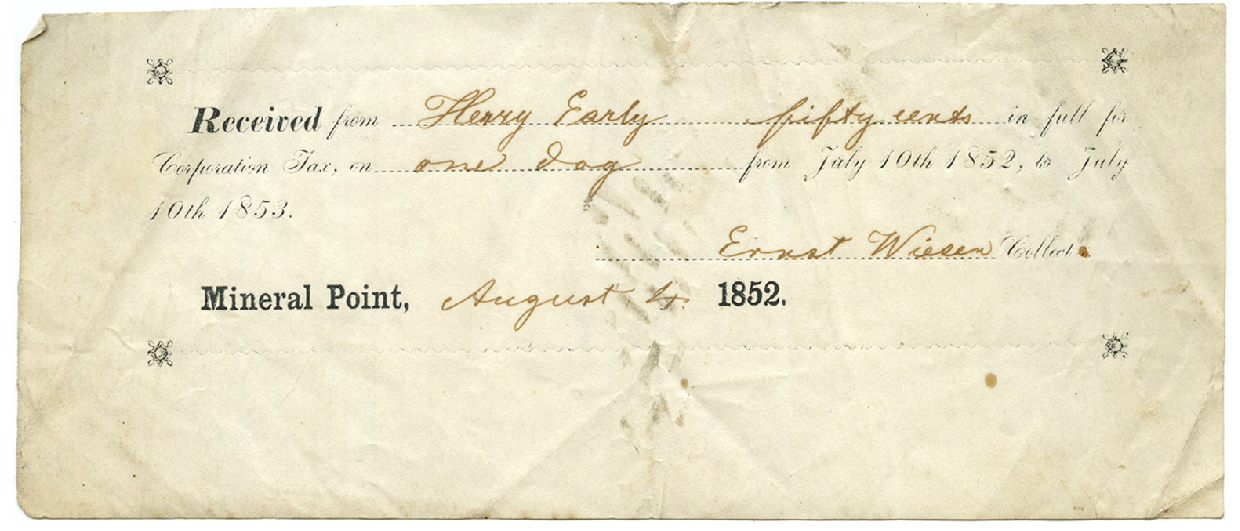 Received from Henry Early fifty cents in full for
Corporation Tax, on one dog from July 10th 1852, to July
10th 1853.
Ernst Wiesen Collect.
Mineral Point, August 4. 1852.